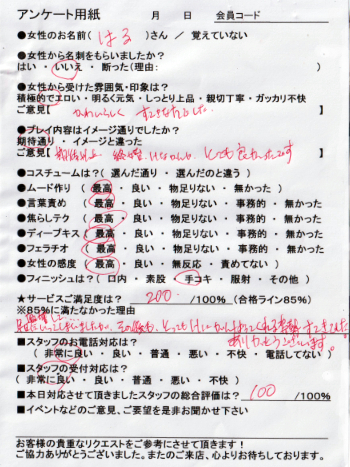 アンケート用紙　月　日　会員コード
●女性のお名前(はる)さん / 覚えていない
●女性から名刺をもらいましたか?
はい・いいえ・断った(理由:　)
●女性から受けた雰囲気・印象は?
積極的でエロい・明るく元気・しっとり上品・親切丁寧・ガッカリ不快
ご意見【かわいらしく　】
●プレイ内容はイメージ通りでしたか?
期待通り・イメージと違った
ご意見【　とても良かったです　】
●コスチュームは?(選んだ通り・選んだのと違う)
●ムード作り(最高・良い・物足りない・無かった)
●言葉責め(最高・良い・物足りない・事務的・無かった)
●焦らしテク(最高・良い・物足りない・事務的・無かった)
●ディープキス(最高・良い・物足りない・事務的・無かった)
●フェラチオ(最高・良い・物足りない・事務的・無かった)
●女性の感度(最高・良い・無反応・責めてない)
●フィニッシュは?(口内・素股・手コキ・服射・その他)
★サービスご満足度は?　200/100%(合格ライン85%)
※85%に満たなかった理由
ありがとうございます。
■スタッフのお電話対応は?
(非常に良い・良い・普通・悪い・不快・電話してない)
■スタッフの受付対応は?
(非常に良い・良い・普通・悪い・不快)
■本日対応させて頂きましたスタッフの総合評価は?　100/100%
■イベントなどのご意見、ご要望を是非お聞かせ下さい
お客様の貴重なリクエストをご参考にさせて頂きます!
ご協力ありがとうございました。またのご来店、心よりお待ちしております。